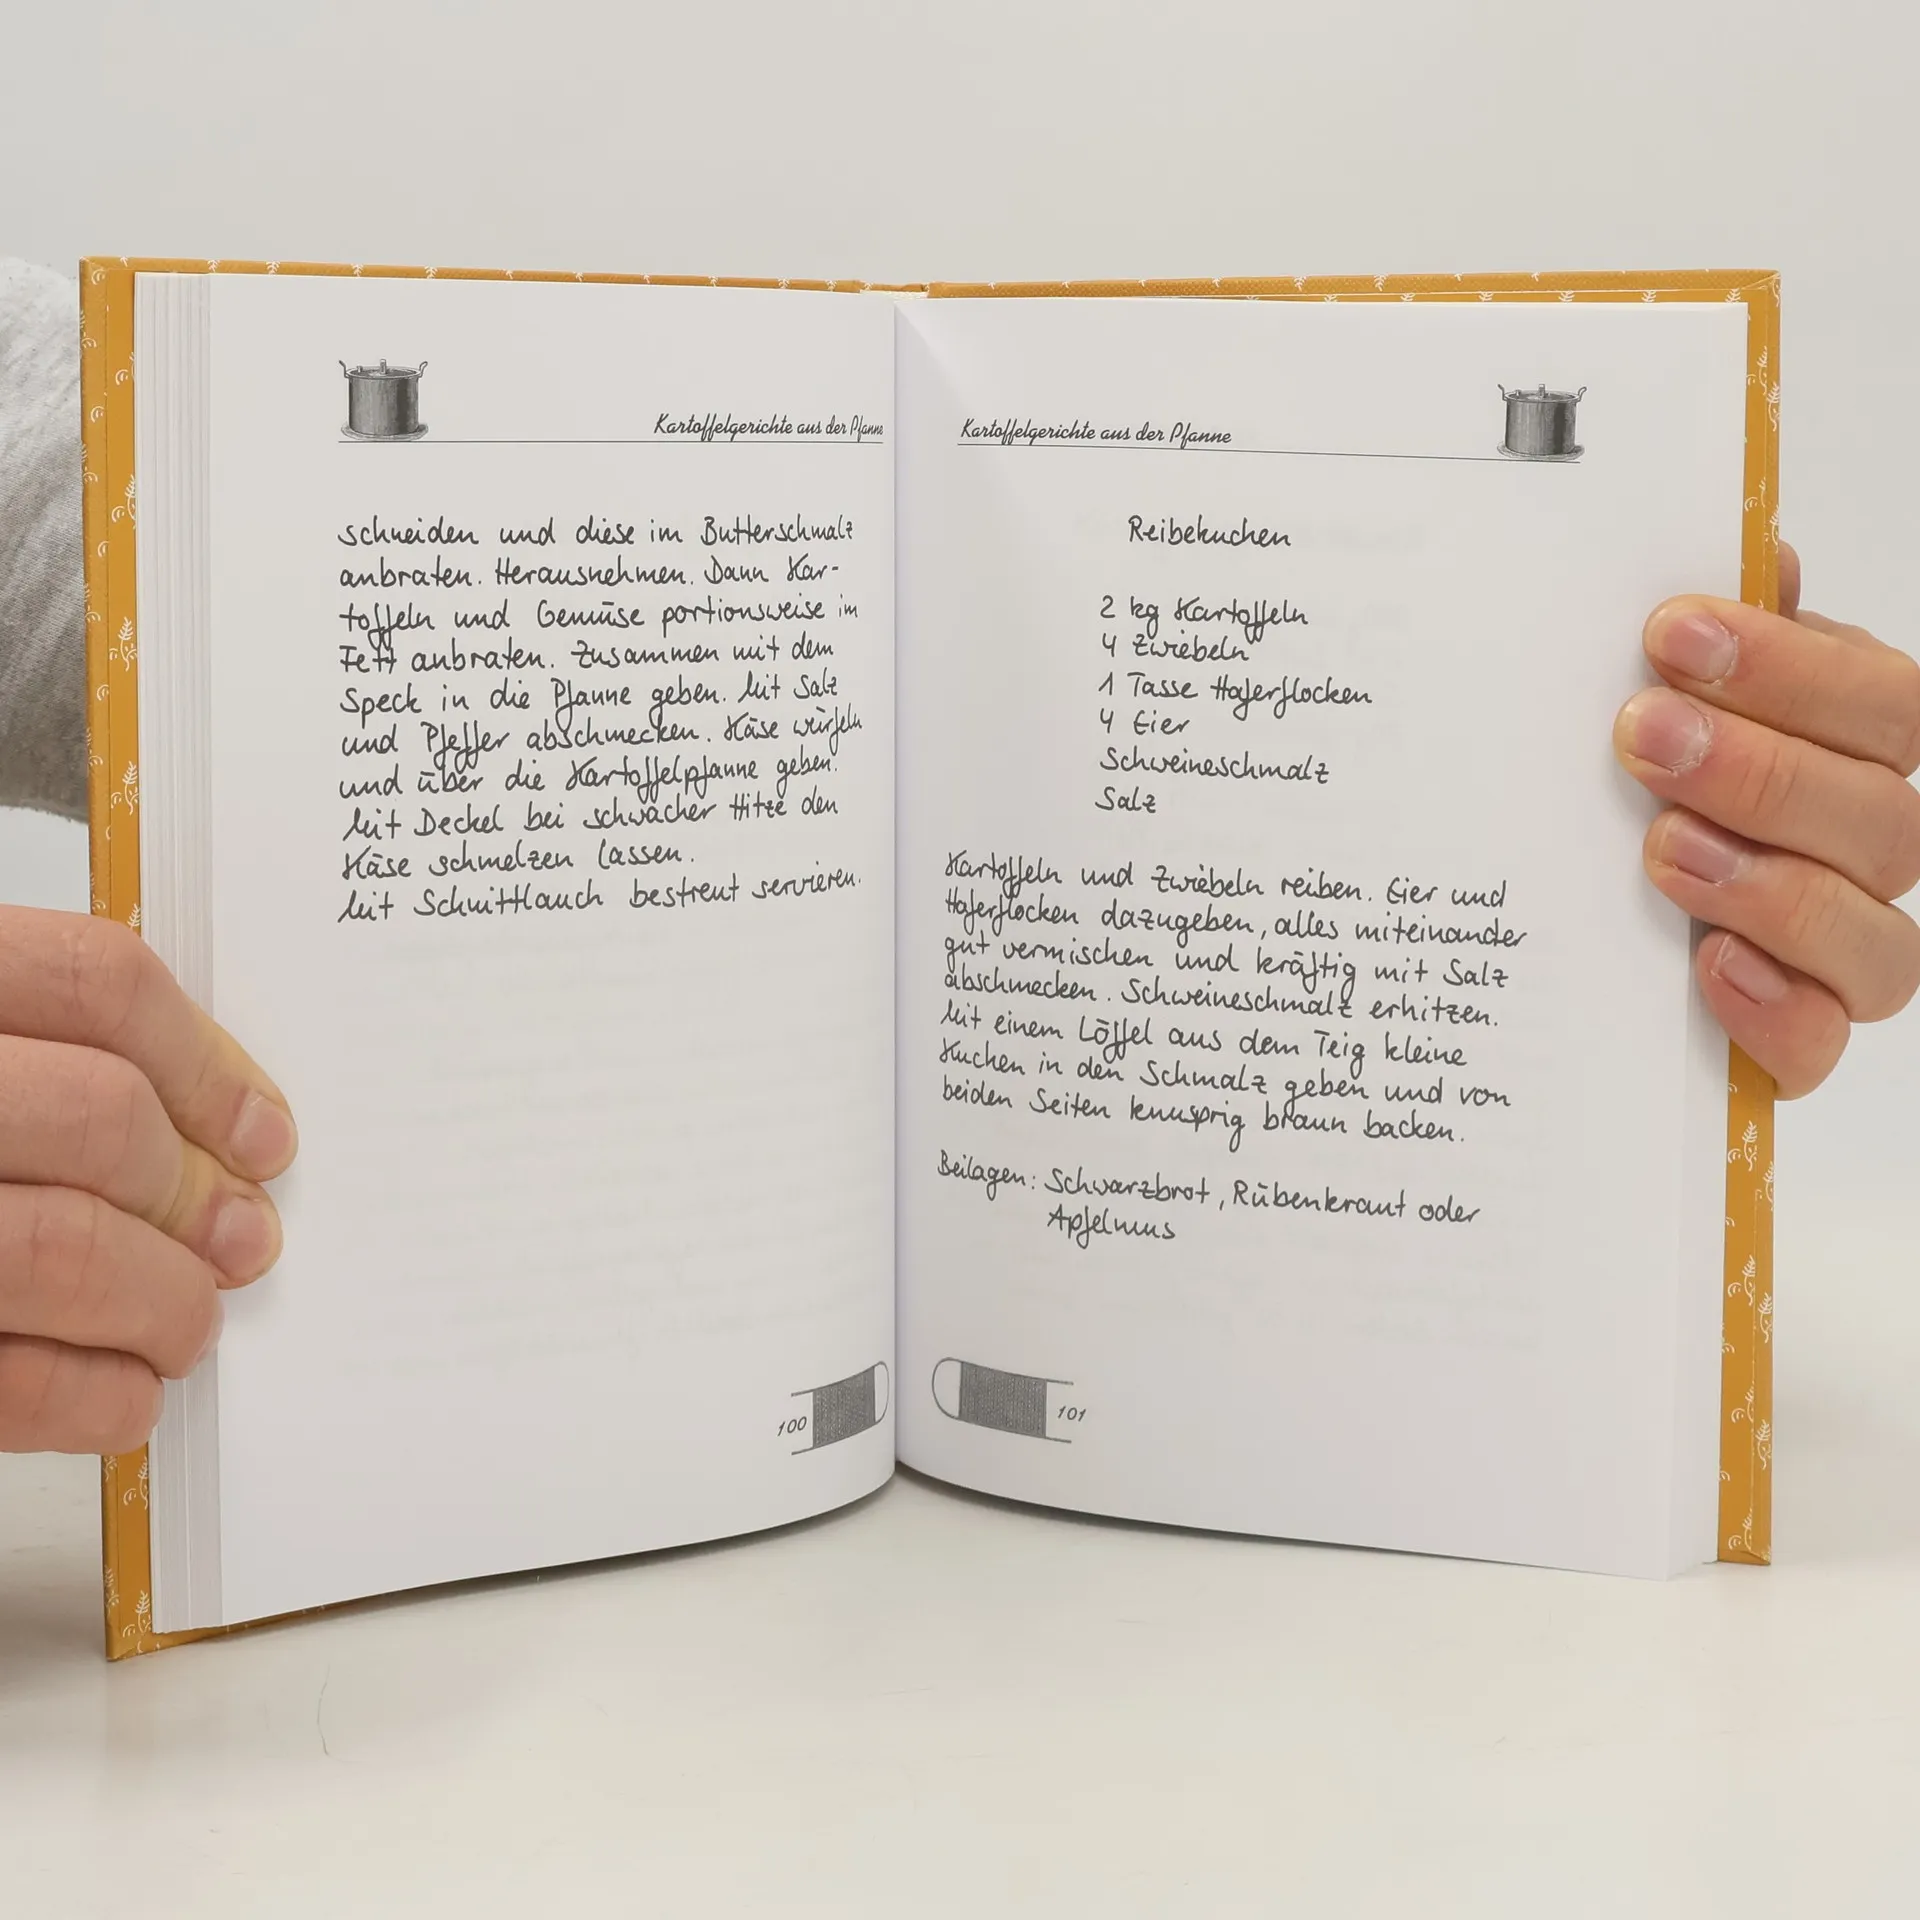 Kartoffelgerichte aus der Pfanne
schneiden und diese im Butterschmalz
anbraten. Herausnehmen. Dann Kar-
toffeln und Gemüse portionsweise im
Fett anbraten. Zusammen mit dem
Speck in die Pfanne geben. Mit Salz
und Pfeffer abschmecken. Käse würfeln
und über die Kartoffelpfanne geben.
Mit Deckel bei schwacher Hitze den
Käse schmelzen lassen.
Mit Schnittlauch bestreut servieren.
100
Kartoffelgerichte aus der Pfanne
Reibekuchen
2 kg Kartoffeln
4 Zwiebeln
1 Tasse Haferflocken
4 Eier
Schweineschmalz
Salz
Kartoffeln und Zwiebeln reiben. Eier und
Haferflocken dazugeben, alles miteinander
gut vermischen und kräftig mit Salz
abschmecken. Schweineschmalz erhitzen.
Mit einem Löffel aus dem Teig kleine
Kuchen in den Schmalz geben und von
beiden Seiten knusprig braun backen.
Beilagen: Schwarzbrot, Rübenkraut oder
Apfelmus
101